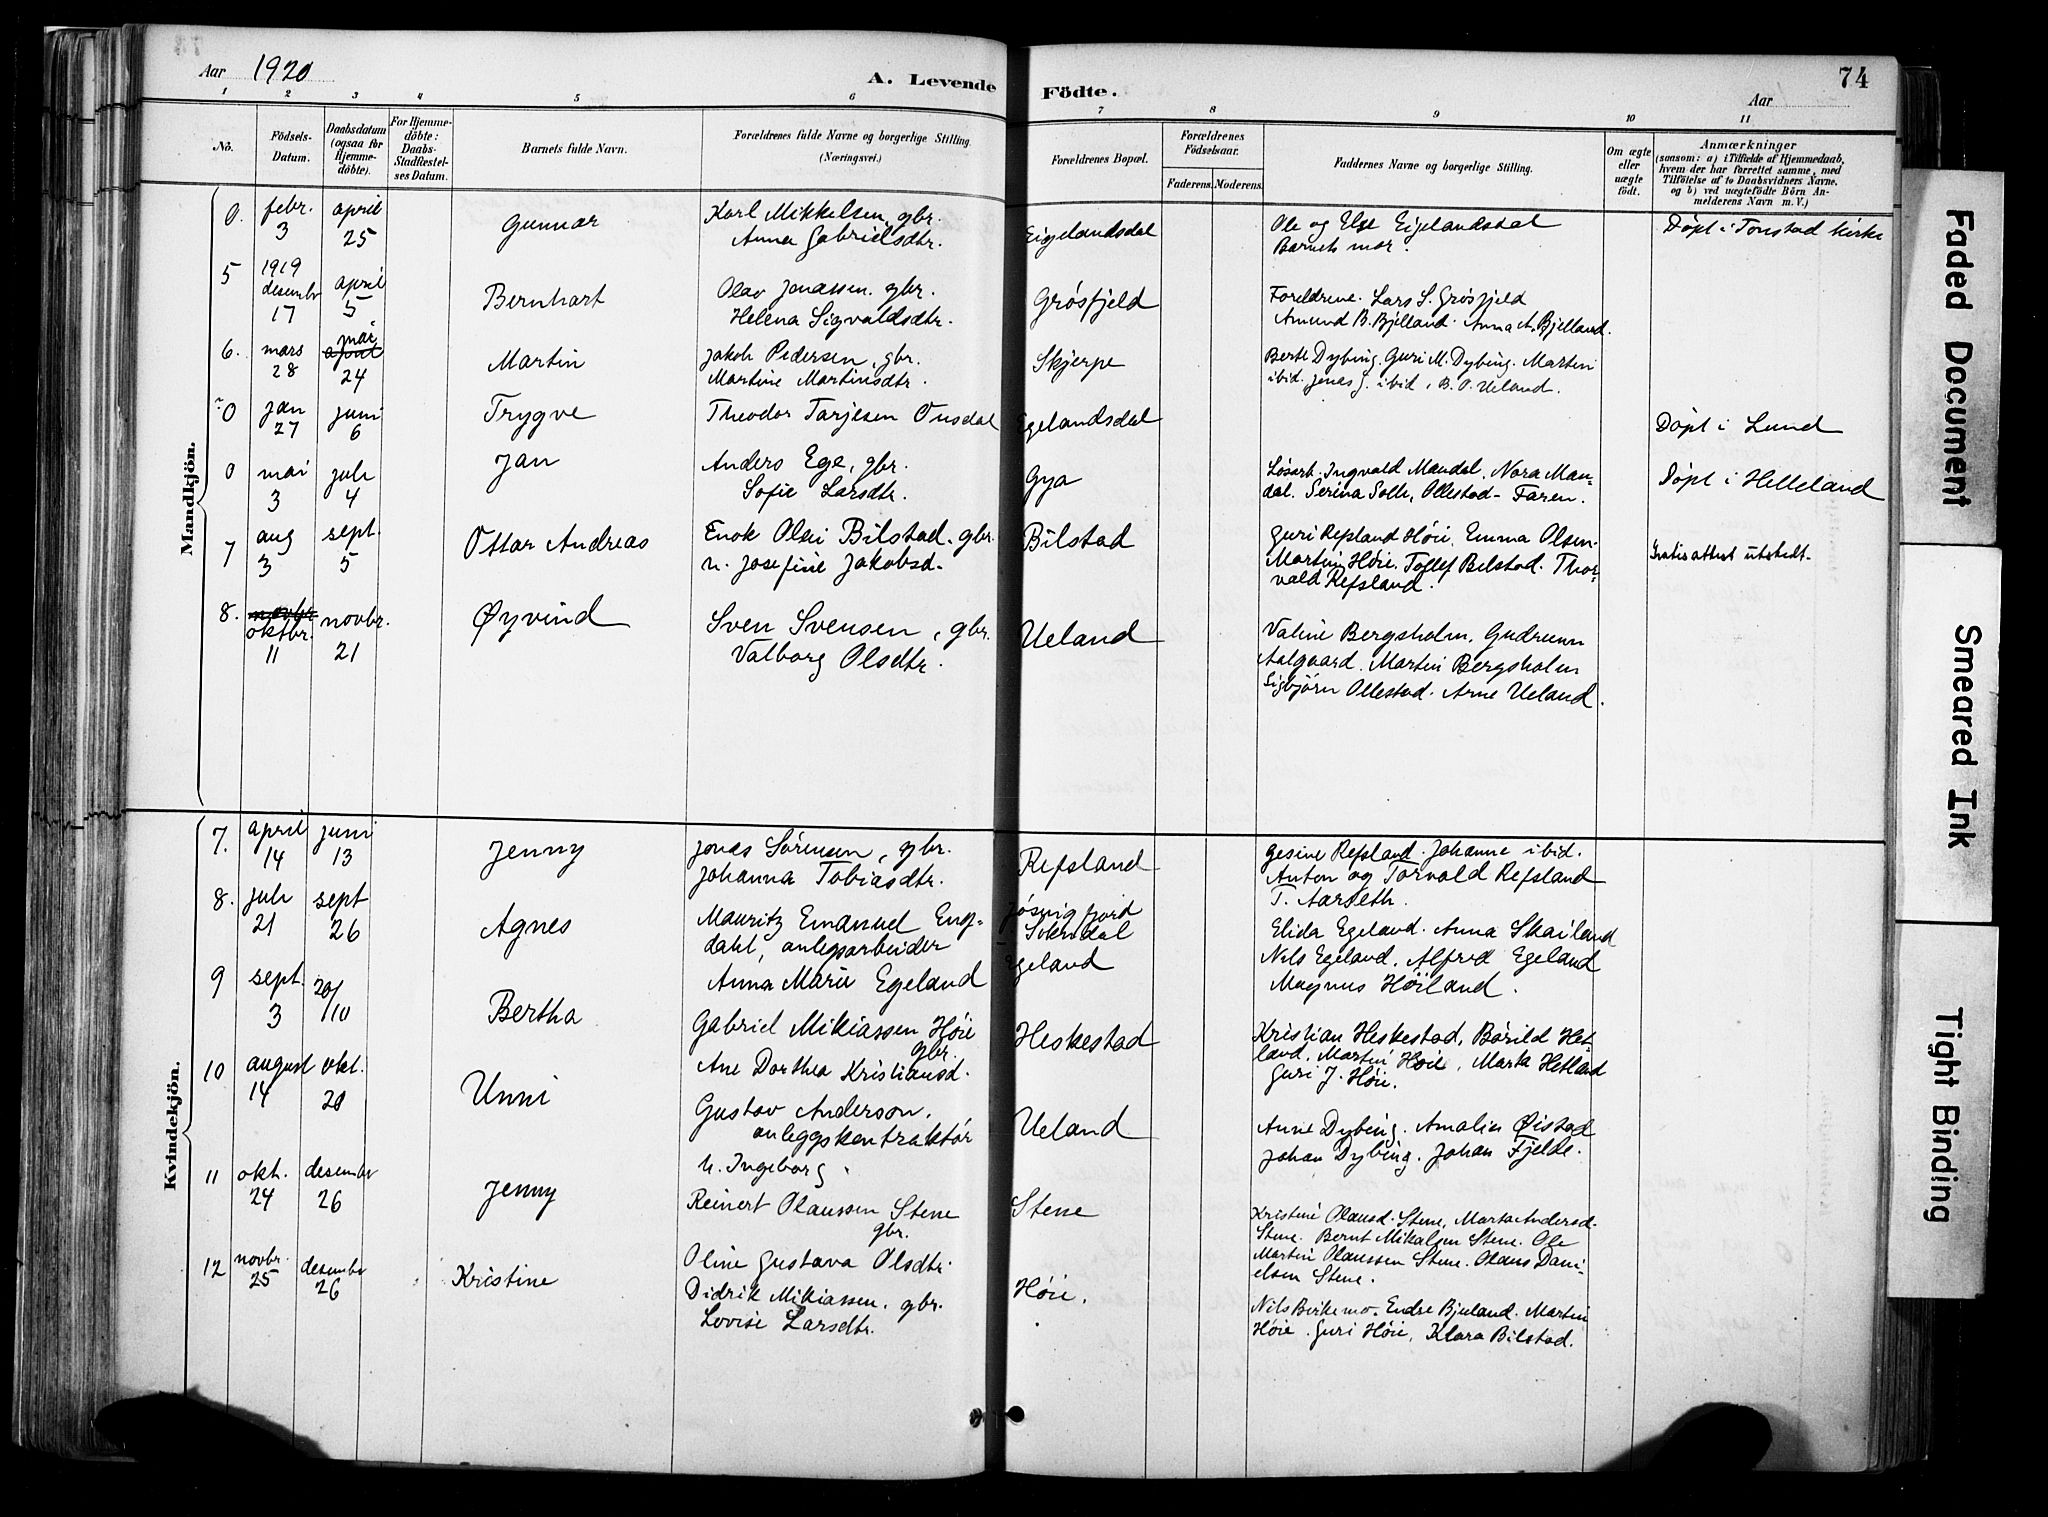 Aar 1920 A. Levende Födte. Aar 74
1 2 3 4 5 6 7 8 9 10 11
No. Födsels-Datum. Daabsdatum (ogsaa for Hjemmedöbte). For Hjemmedöbte: Daabs-Stadfæstelses Datum. Barnets fulde Navn. Forældrenes fulde Navne og borgerlige Stilling. (Næringsvei.) Forældrenes Bopæl. Forældrenes Födselsaar. Faderens. Moderens. Faddernes Navne og borgerlige Stilling. Om ægte eller uægte födt. Anmærkninger
(saasom: a) i Tilfælde af Hjemmedaab,
hvem der har forrettet samme, med
Tilföielse af to Daabsvidners Navne,
og b) ved uægtefödte Börn Anmelderens Navn m. V.)
Mandkjön.
0. febr. 3 april 25 Gunnar Karl Mikkelsen, gbr.
Anna Gabrielsdtr. Eigelandsdal Ole og Else Eigelandsdal
Barnets mor. Døpt i Tonstad kirke
5 1919 desembr 17 april 5 Bernhart Olav Jonassen. gbr.
Helena Sigvaldsdtr. Grøsfjeld Foreldrene. Lars S. Grøsfjeld
Amund B. Bjelland. Anna A. Bjelland.
6. mars 28 april mai 24 Martin Jakob Pedersen, gbr.
Martine Martinsdtr. Skjerpe Berte Dybing. Guri M. Dybing. Martin
ibid. Jonas J. ibid, B. O. Ueland.
0 jan 27 juni 6 Trygve Theodor Tarjesen Ousdal Egelandsdal Døpt i Lund
0 mai 3 juli 4 Jan Anders Ege, gbr.
Sofie Larsdtr. Gya Løsarb. Ingvald Mandal. Nora Man-
dal. Serina Solli, Ollestad- Faren. Døpt i Helleland
7 aug 3 sept. 5 Ottar Andreas Enok Olsen Bilstad. gbr.
h. Josefine Jakobsd. Bilstad Guri Refsland Høie, Emma Olsen.
Martin Høie. Tollef Bilstad. Thor-
vald Refsland. Gratis attest utstedt.
8. novbr oktbr. 11 novbr. 21 Øyvind Sven Svensen, gbr.
Valborg Olsdtr. Ueland Valine Bergsholm, Gudrunn
Aalgaard. Martin Bergsholm
Sigbjörn Ollestad. Arne Ueland.
Kvindekjön.
7. april 14 juni 13 Jenny Jonas Sörensen, gbr.
Johanna Tobiasdtr. Refsland Gesine Refsland. Johanne ibid.
Anton og Torvald Refsland
T. Aarseth.
8. juli 21 sept 26 Agnes Mauritz Emanuel Eng-
dahl, anlegsarbeider
Anna Marie Egeland Jøsingfjord
Sokndal
Egeland Elida Egeland. Anna Skailand
Nils Egeland. Alfred Egeland
Magnus Høiland.
9 sept. 3 20/10 Bertha Gabriel Mikiassen Høie
gbr.
Ane Dorthea Kristiansd. Heskestad Kristian Heskestad, Bårild Het-
land. Martin Høie, Marta Hetland
Guri J. Høie.
10 august 14 okt. 20 Unni Gustav Anderson,
anleggskontraktör
h. Ingeborg. Ueland Anne Dybing. Amalia Øistad
Johan Dybing. Johan Fjelde.
11 okt. 24 desember 26 Jenny Reinert Olaussen Stene
gbr.
Oline Gustava Olsdtr. Stene Kristine Olausd. Stene, Marta Andersd.
Stene. Bernt Mikalsen Stene. Ole
Martin Olaussen Stene. Olaus Dani-
elsen Stene.
12 novbr. 25 desember 26 Kristine Didrik Mikiassen, gbr.
Lovise Larsdtr. Høie. Nils Birkemo. Endre Bjuland. Martin
Høie. Guri Høie, Klara Bilstad.
Faded Document
Smeared Ink
Tight Binding